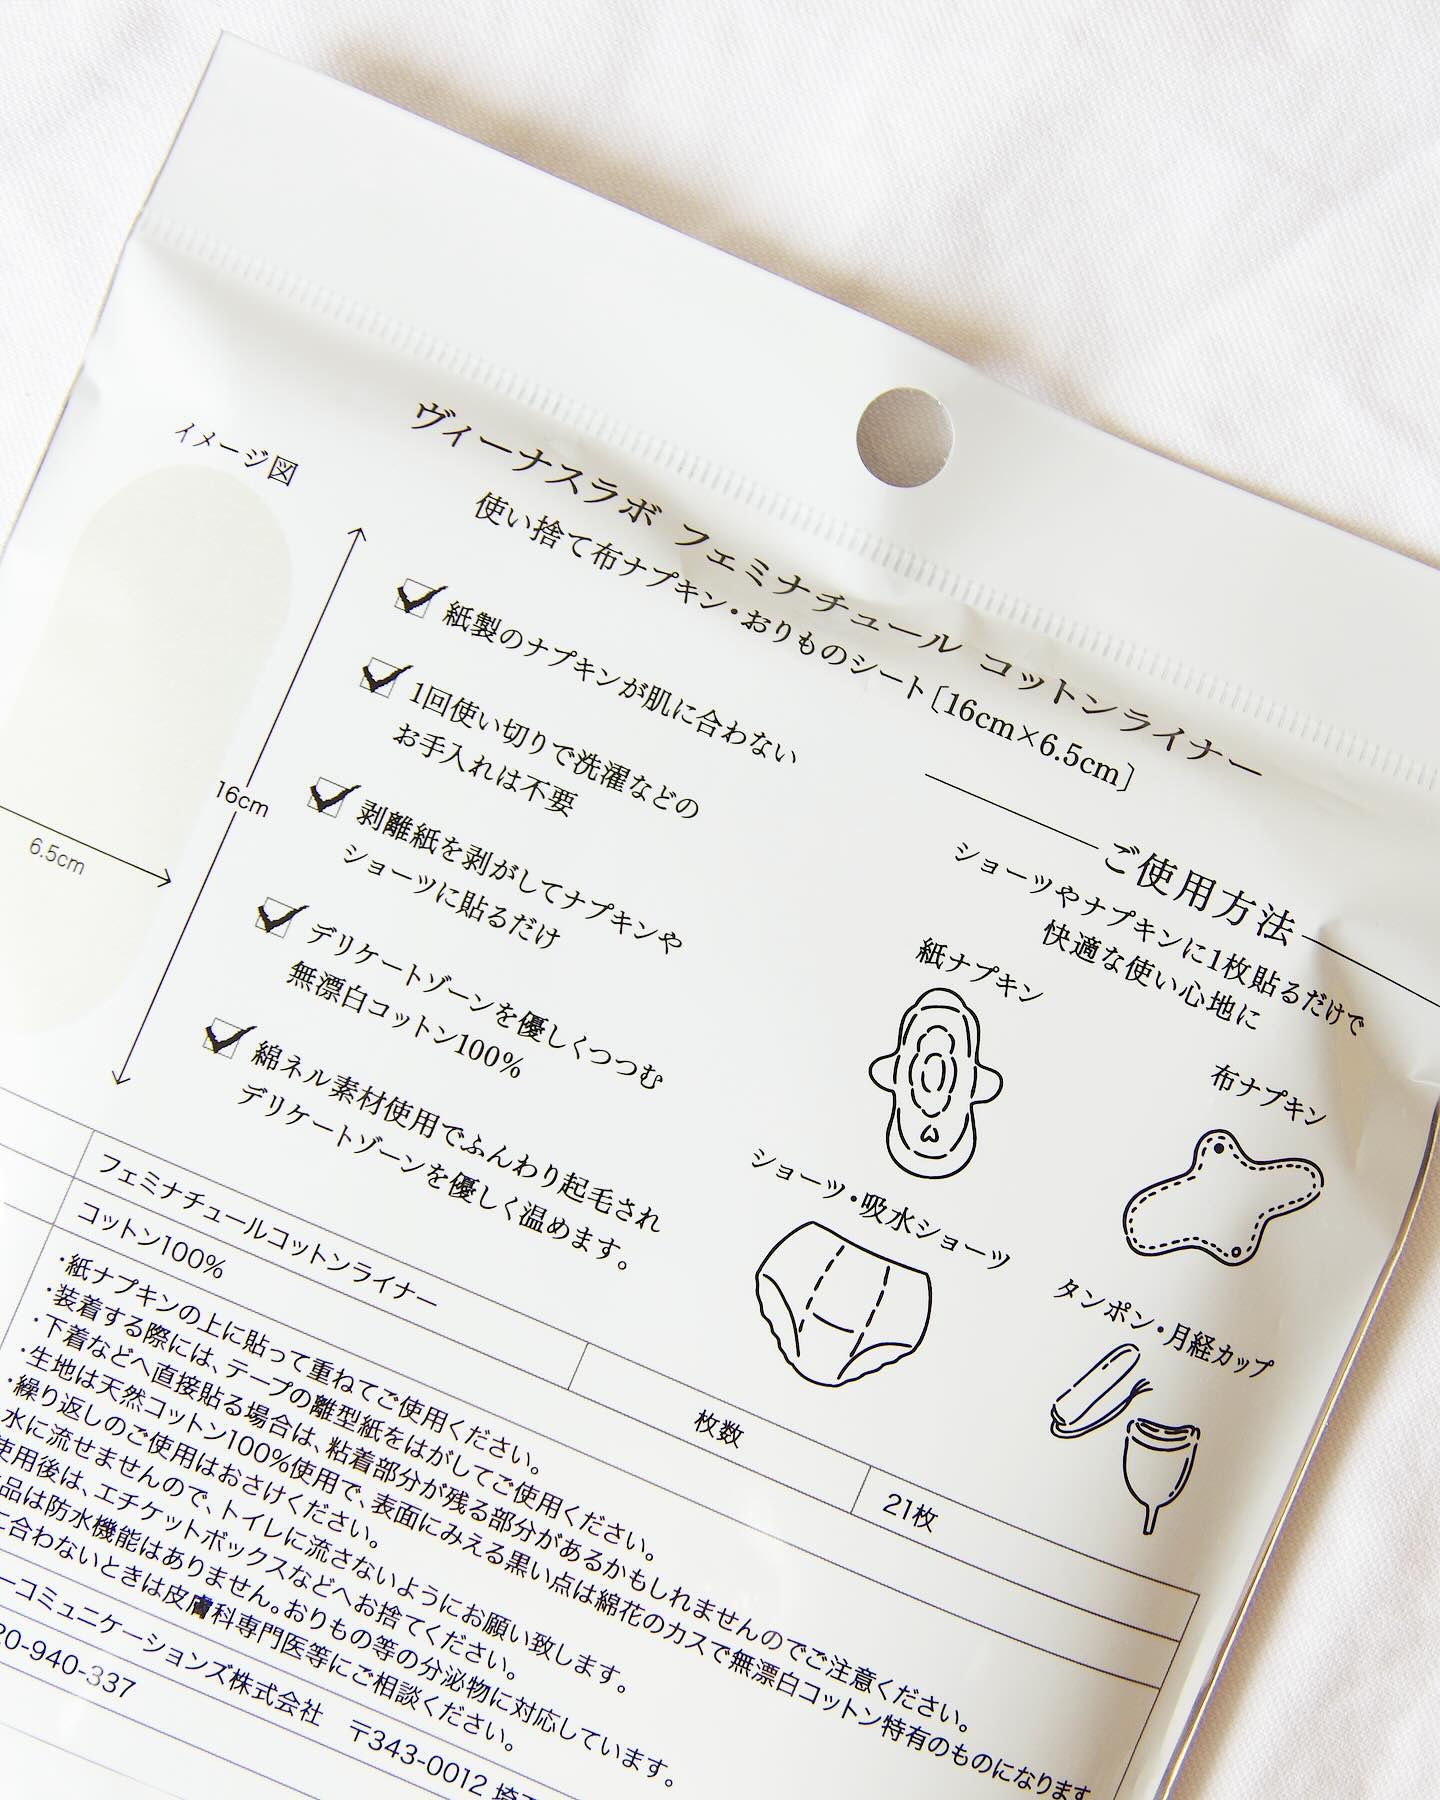 ヴィーナスラボ フェミナチュール コットンライナー
使い捨て布ナプキン・おりものシート［16cm×6.5cm］
イメージ図
16cm
6.5cm
紙製のナプキンが肌に合わない
1回使い切りで洗濯などの
お手入れは不要
剥離紙を剥がしてナプキンや
ショーツに貼るだけ
デリケートゾーンを優しくつつむ
無漂白コットン100%
綿ネル素材使用でふんわり起毛され
デリケートゾーンを優しく温めます。
ご使用方法
ショーツやナプキンに1枚貼るだけで
快適な使い心地に
紙ナプキン
布ナプキン
ショーツ・吸水ショーツ
タンポン・月経カップ
フェミナチュールコットンライナー
コットン100%
枚数
21枚
・紙ナプキンの上に貼って重ねてご使用ください。
・装着する際には、テープの離型紙をはがしてご使用ください。
・下着などへ直接貼る場合は、粘着部分が残る部分があるかもしれませんのでご注意ください。
・生地は天然コットン100%使用で、表面にみえる黒い点は綿花のカスで無漂白コットン特有のものになります
・繰り返しのご使用はおさけください。
水に流せませんので、トイレに流さないようにお願い致します。
使用後は、エチケットボックスなどへお捨てください。
品は防水機能はありません。おりもの等の分泌物に対応しています。
に合わないときは皮膚科専門医等にご相談ください。
ーコミュニケーションズ株式会社 〒343-0012 埼
20-940-337